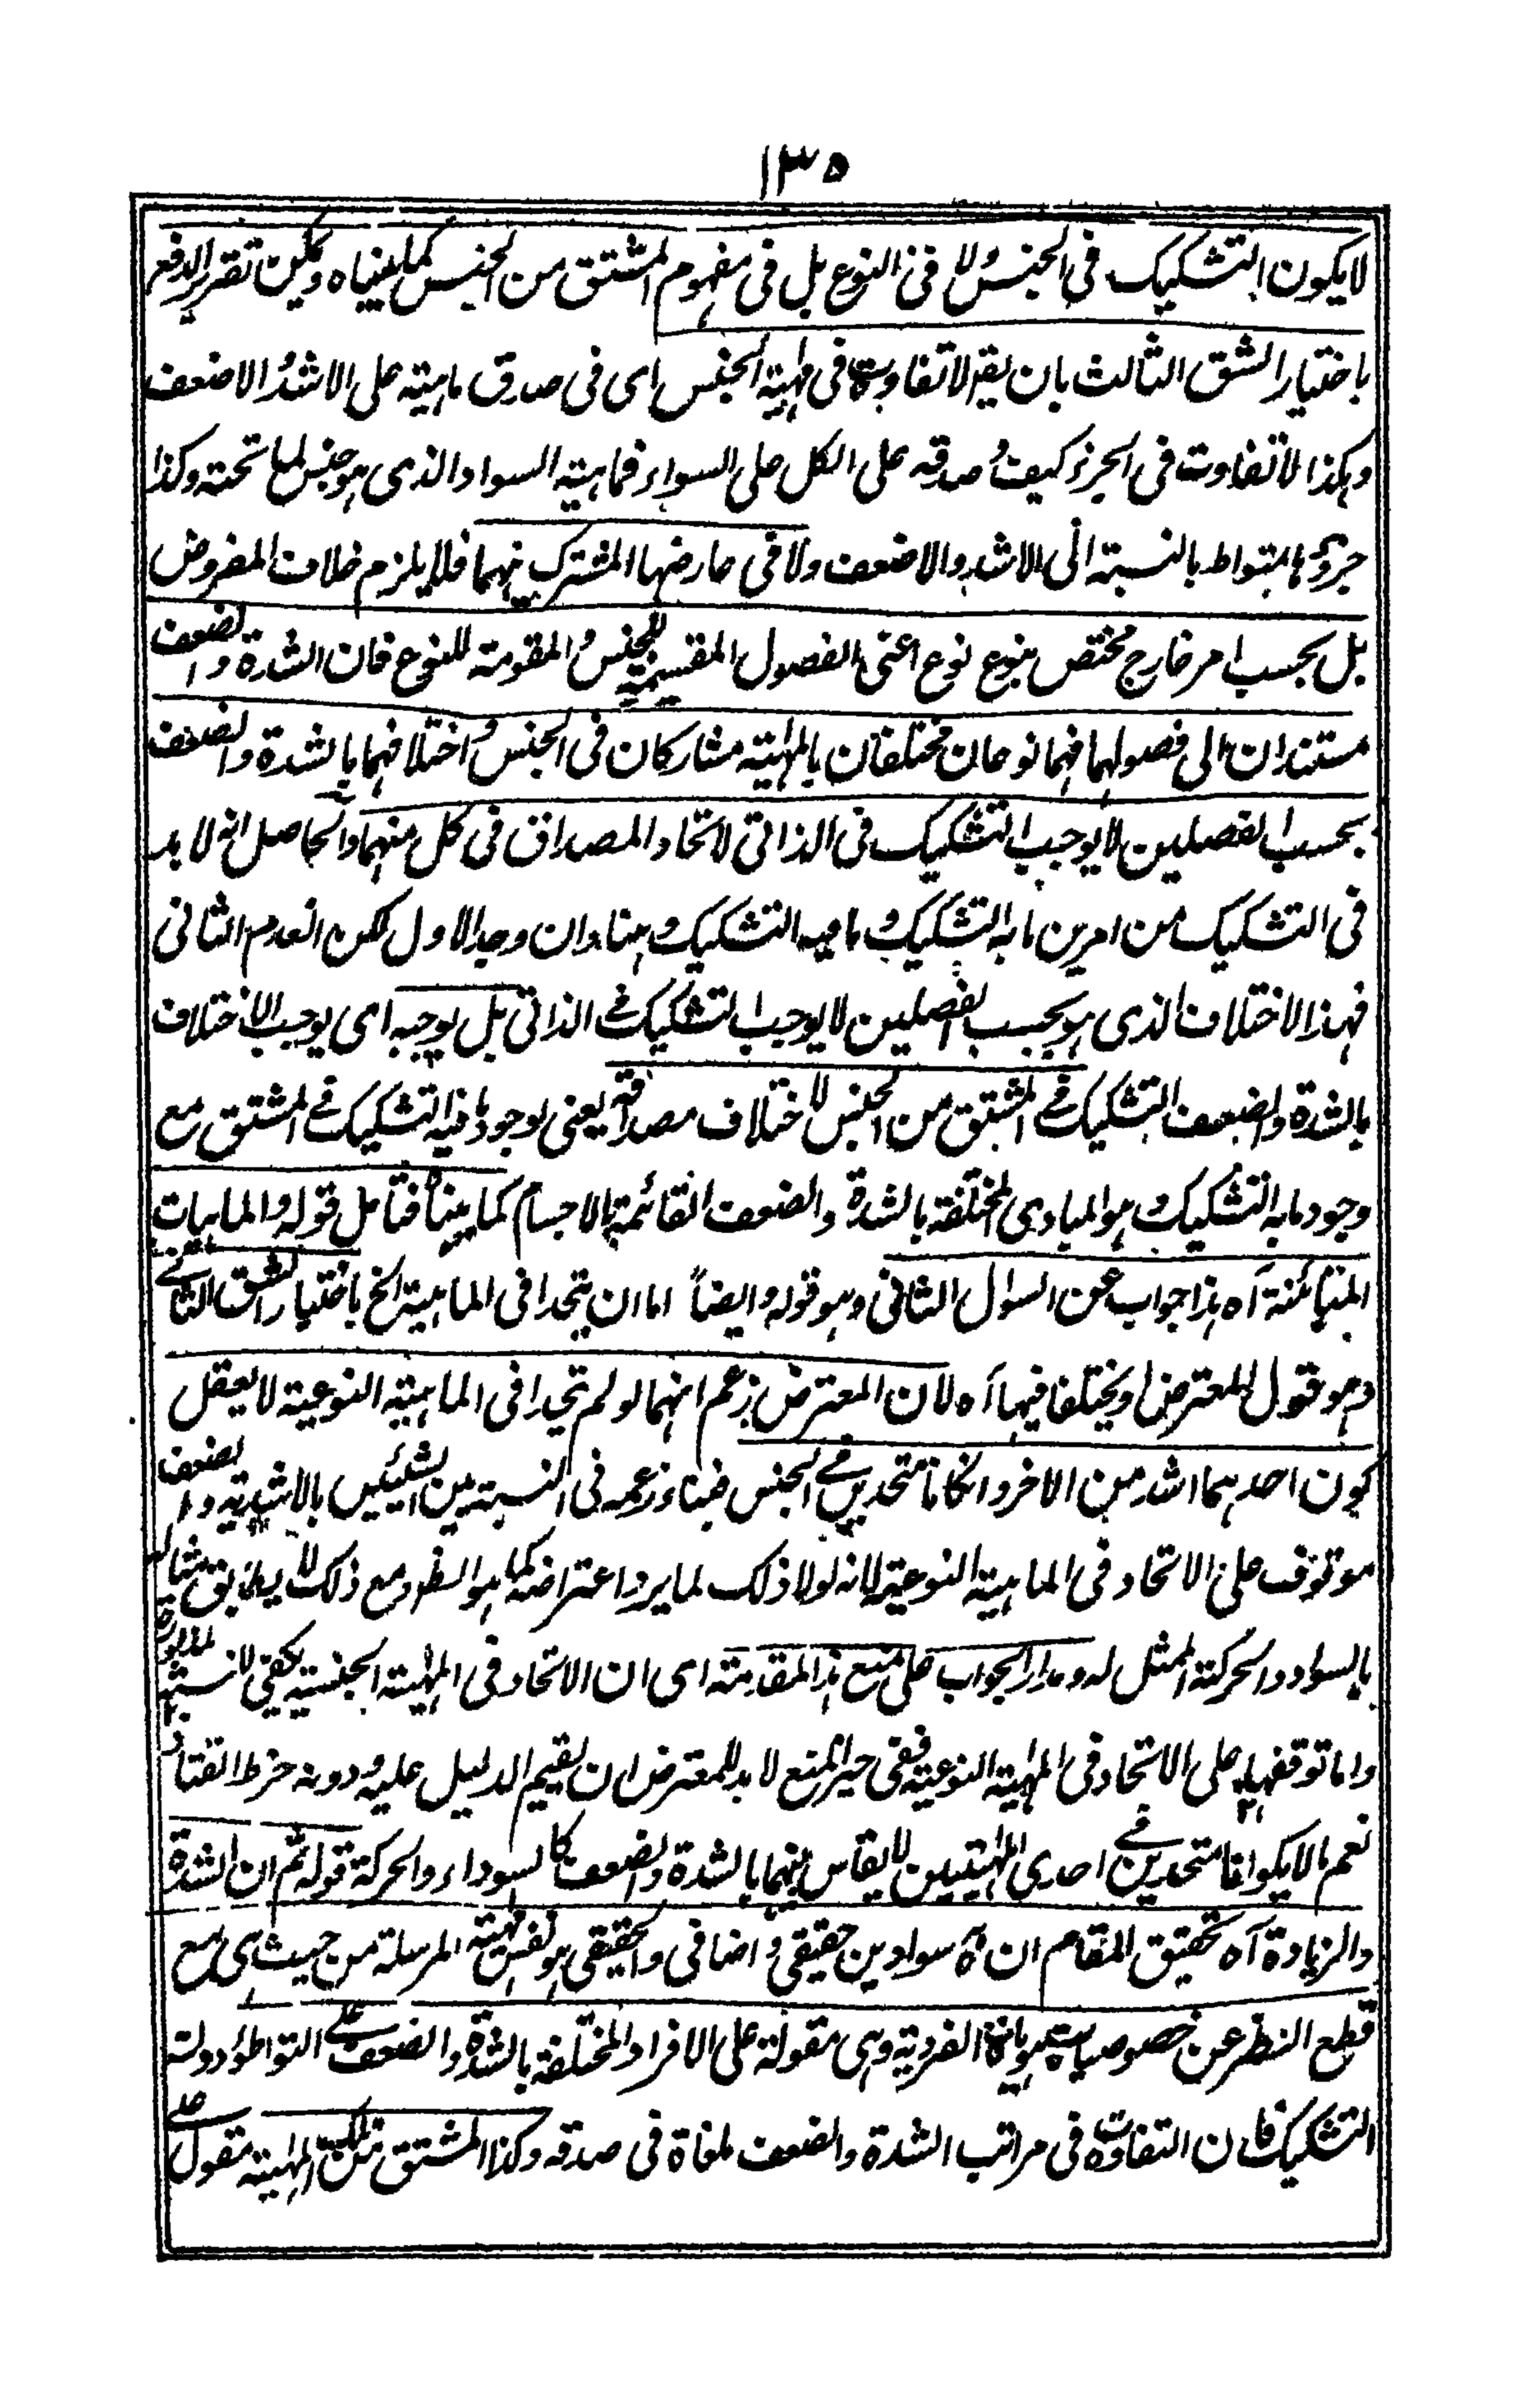 ١٣٥
لا يكون التشكيك فى الجنس ولا فى النوع بل فى مفهوم المشتق من الجنس كما بيناه ويمكن تقرير الدفع
باختيار الشق الثالث بان يقر لا تفاوت فى ماهية الجنس اى فى صدق ماهيته على الاشد والاضعف
وهكذا لا تفاوت فى الجزء كيف وصدقه على الكل على السواء فماهية السواد الذى هو جنس لما تحته وكذا
جزؤها متواط بالنسبة الى الاشد والاضعف ولا فى عارضها المشترك بينهما فلا يلزم خلاف المفروض
بل بحسب امر خارج مختص بنوع نوع اعنى الفصول المقسمة للجنس والمقومة للنوع فان الشدة والضعف
مستندان الى فصولهما فهما نوعان مختلفان بالماهية مشاركان فى الجنس واختلافهما بالشدة والضعف
بحسب الفصلين لا يوجب التشكيك فى الذاتى لاتحاد المصداق فى كل منهما والحاصل انه لا بد
فى التشكيك من امرين ما به التشكيك وما فيه التشكيك وهنا وان وجد الاول لكن انعدم الثانى
فهذا الاختلاف الذى هو بحسب الفصلين لا يوجب التشكيك فے الذاتى بل يوجبه اى يوجب الاختلاف
بالشدة والضعف التشكيك فے المشتق من الجنس لاختلاف مصداقه يعنى لوجود ما فيه التشكيك فے المشتق مع
وجود ما به التشكيك وهو المبادى المختلفة بالشدة والضعف القائمة بالاجسام كما بينا فتامل قوله والماهيات
المتبائنة آه هذا جواب عن السوال الثانى وهو قوله وايضاً اما ان يتحدا فى الماهية الخ باختيار الشق الثانے
وهو قول المعترض او يختلفا فيها آه لان المعترض زعم انهما لو لم تتحدا فى الماهية النوعية لا يعقل
كون احدهما اشد من الاخر وان كانا متحدين فے الجنس فبناء زعمه فى النسبة بين الشيئين بالاشدية والضعف
موقوف على الاتحاد فى الماهية النوعية لانه لولا ذلك لما يرد اعتراضه كما هو الظ ومع ذلك لا يطابق مثاله
بالسواد والحركة الممثل له ومدار الجواب على منع هذا المقدمة اى ان الاتحاد فى الماهية الجنسية يكفى لانسبة المذكورة
واما توقفها على الاتحاد فى الماهية النوعية ففى حيز المنع لا بد للمعترض ان يقيم الدليل عليه ودونه خرط القتاد
نعم ما لا يكونا متحدين فے احدى الماهيتين لا يقاس بينهما بالشدة والضعف كالسواد والحركة قوله ثم ان الشدة
والزيادة آه تحقيق المقام ان سوادين حقيقى واضافى والحقيقى هو نفس ماهيته المرسلة من حيث هى مع
قطع النظر عن خصوصيات هوياته الفردية وهى مقولة على الافراد المختلفة بالشدة والضعف علے التواطؤ دون
التشكيك فان التفاوت فى مراتب الشدة والضعف ملغاة فى صدقه وكذا المشتق من تلك الماهية مقول علے